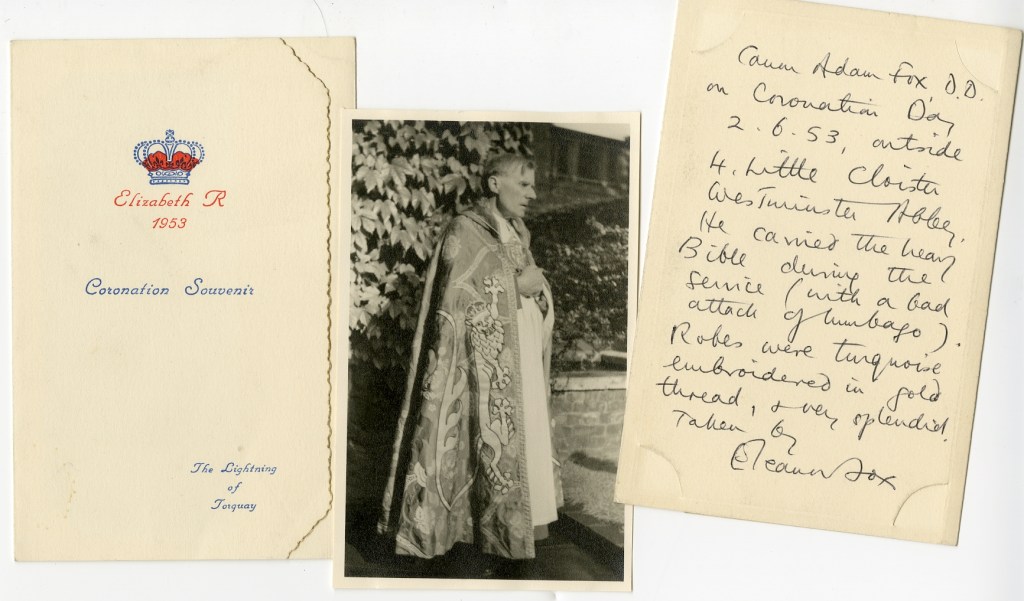 Elizabeth R
1953
Coronation Souvenir
The Lightning
of
Torquay
Canon Adam Fox, D.D.
on Coronation Day
2.6.53, outside
4. Little Cloister
Westminster Abbey.
He carried the heavy
Bible during the
service (with a bad
attack of lumbago).
Robes were turquoise
embroidered in gold
thread, & very splendid.
Taken by
Eleanor Fox